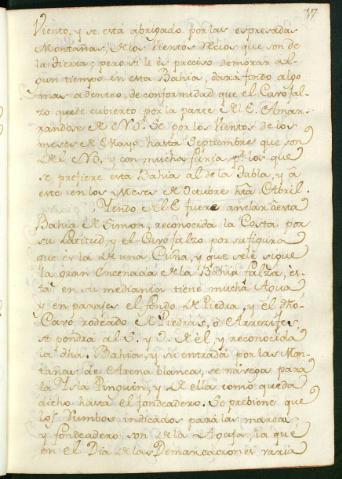 17
Viento, y se está abrigado por las expresadas
Montañas, de los Vientos recios que son de
la tierra; pero si le es preciso demorar al-
gun tiempo en esta Bahia, dará fondo algo
mas adentro, de conformidad que el Cavo fal-
zo quede cubierto por la parte del E. Amar-
randose N S. por los Vientos de los
meses de Mayo hasta Septiembre que son
del N. y con mucha fuerza, pr los que
se prefiere esta Bahia al de la Tabla, y a
este en los Meses de Octubre hta. Abril.
Yendo del E. fuera anclar á esta
Bahia de Simon, reconocida la Costa por
su latitud, y el Cavo falzo por su figura
que es la de una Cuña, y que se le sigue
la gran Encenada de la Bahia falza, es-
ta en su mediania tiene mucha Agua
y en parajes el fondo de Piedra, y el dho.
Cavo rodeado de Piedras, ó Arrecifes
se pondra al S. y de él, y reconocida
la dha. Bahia, y si entrada por las Mon-
tañas de Arena blanca, se navega para
la Isla Pinguin, y de ella como queda
dicho hasta el fondeadero. Se previene que
los Rumbos indicados para la marca,
y fondeadero, son de la Aguja, la que
en el Dia de las Demarcaciones varia